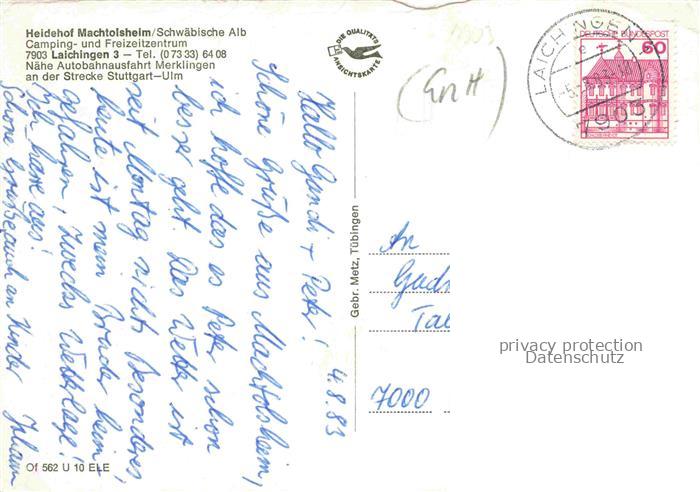 Heidehof Machtolsheim/Schwäbische Alb
Camping- und Freizeitzentrum
7903 Laichingen 3 — Tel. (07333) 64 08
Nähe Autobahnausfahrt Merklingen
an der Strecke Stuttgart—Ulm
DIE QUALITÄTS
ANSICHTSKARTE
(GnH)
LAICHINGEN
7903
DEUTSCHE BUNDESPOST
60
4.8.83
Hallo Gundi + Peter!
Schöne Grüße aus Machtolsheim,
ich hoffe das es Peter schon
besser geht. Das Wetter ist
seit Montag nichts Besonderes,
heute ist mein Bruder heim-
gefahren, zwecks Wetterlage!
Ich harre aus!
Schöne Grüße auch an Kinder
Gebr. Metz, Tübingen
An
7000
privacy protection
Datenschutz
Of 562 U 10 ELE